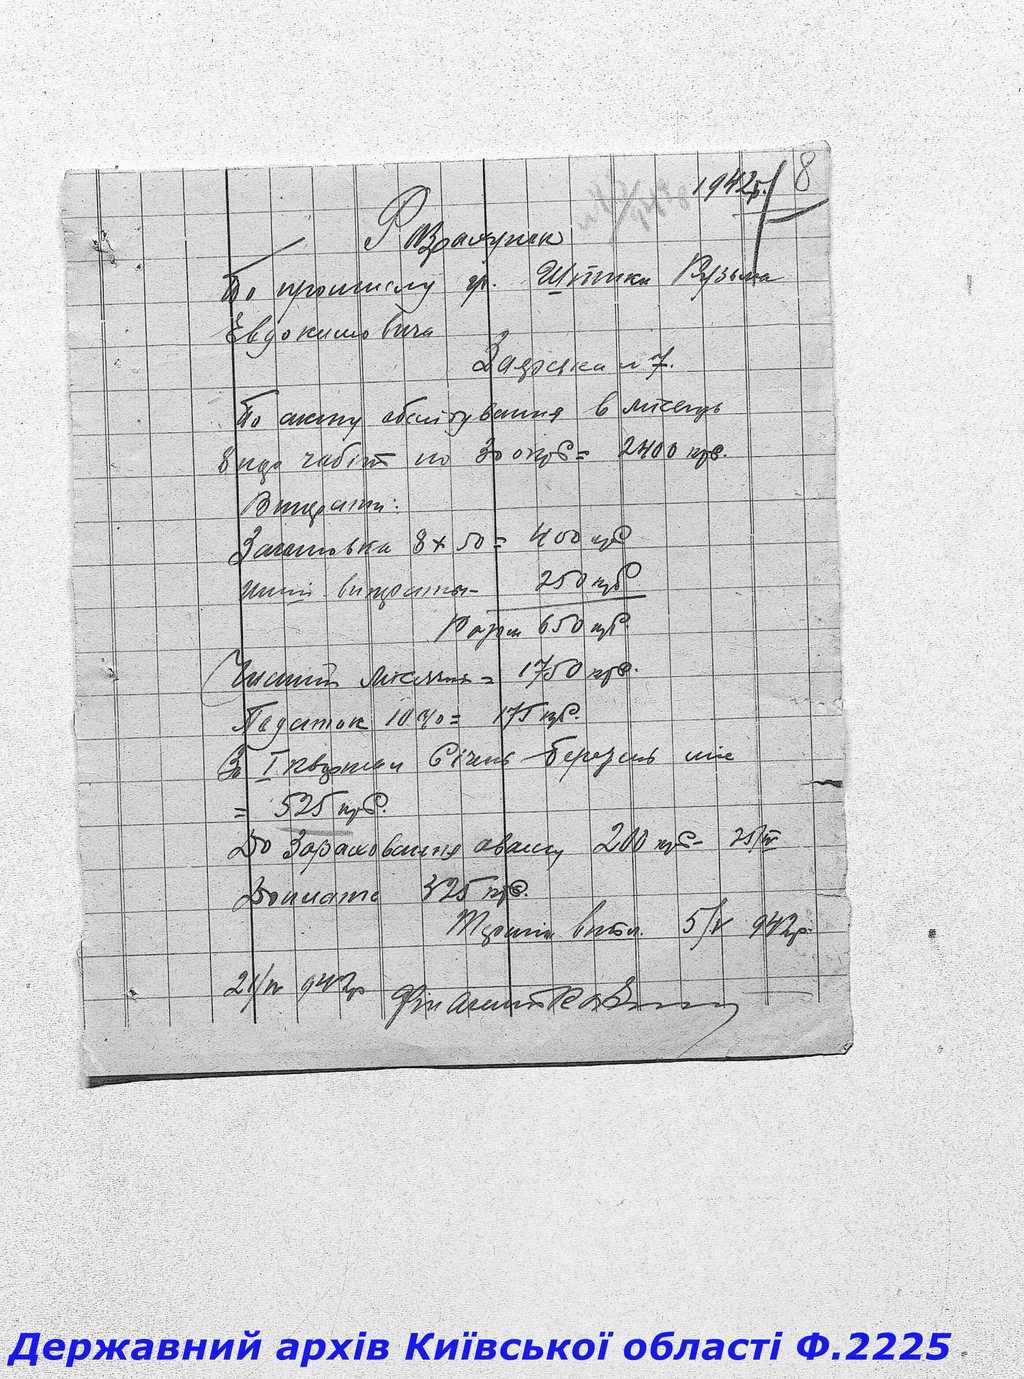 1942р. 8
Розрахунок
По промислу гр. Шпитки Кузьма
Евдокимовича
Заярська № 7.
По акту обслідування в місяць
8 пар чобіт по 300 крб = 2400 крб.
Витрати:
Заготовка 8 х 50 = 400 крб
інші витрати - 250 крб
Разом 650 крб
Чистий місячний = 1750 крб.
Податок 10% = 175 крб.
За I квартал Січень-березень
= 525 крб.
До Зарахування авансу 200 крб =
Доплата 325 крб.
Термін 5/V 942р.
21/IV 942р Фінагент
Державний архів Київської області Ф.2225